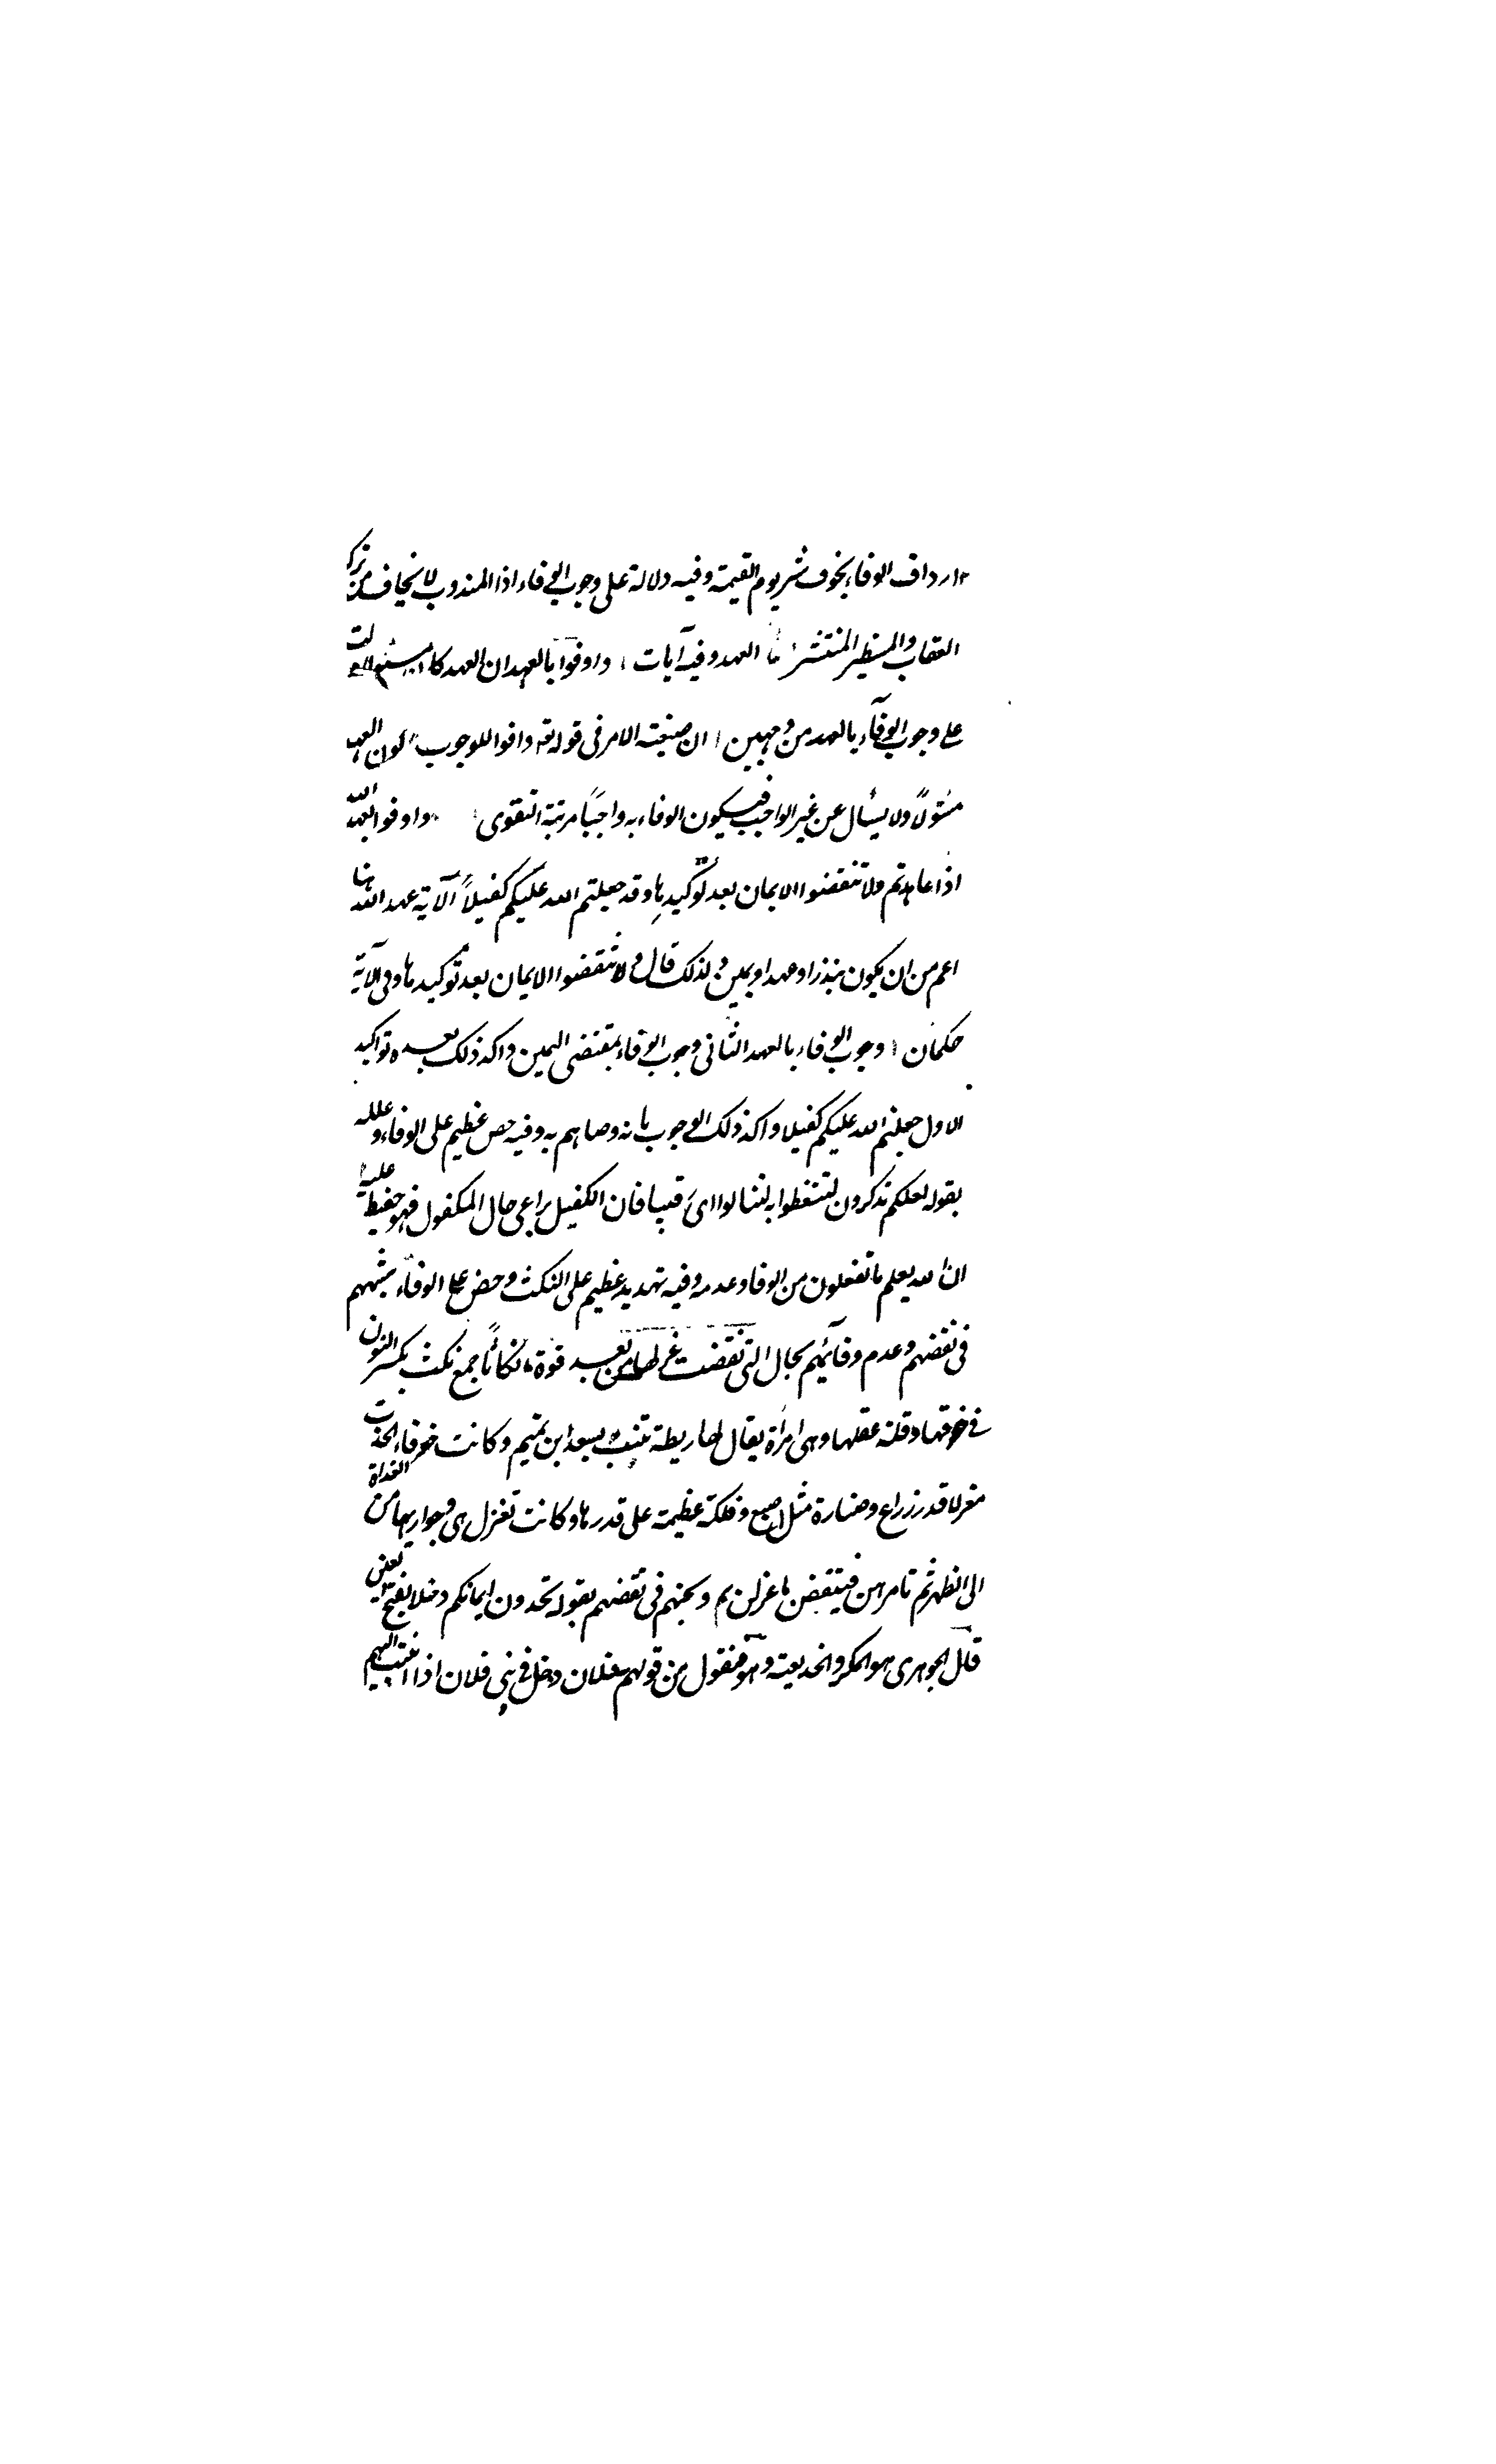 ۲ ارداف الوفاء بخوف شر يوم القيمة وفيه دلالة على وجوب الوفاء اذا المندوب لا يخاف من تركه
العقاب والمستطير المنتشر العهد وفيه آيات ا واوفوا بالعهد ان العهد كان مسئولا دلت
على وجوب الوفاء بالعهد من وجهين ا ان صيغة الامر فى قوله تع وافوا للوجوب ب كون العهد
مسئولاً ولا يسأل عن غير الواجب فيكون الوفاء به واجباً مرتبة التقوى واوفوا بعهد الله
اذا عاهدتم ولا تنقضوا الايمان بعد توكيدها وقد جعلتم الله عليكم كفيلاً الآية عهد الله هنا
اعم من ان يكون بنذر او عهد او يمين ولذلك قال ولا تنقضوا الايمان بعد توكيدها وفى الآية
حكمان ا وجوب الوفاء بالعهد الثانى وجوب الوفاء بمقتضى اليمين واكد ذلك بعده تواكيد
الاول جعلتم الله عليكم كفيلا واكد ذلك الوجوب بانه وصاهم به وفيه حص عظيم على الوفاء وعلله
بقوله لعلكم تذكرون لتتعظوا به لتنالوا اى رقيبا فان الكفيل يراعى حال المكفول فهو حفيظ عليه
ان الله يعلم ما تفعلون من الوفا وعدمه وفيه تهديد عظيم على النكث وحض على الوفاء شبههم
فى نقضهم وعدم وفائهم بحال التى نقضت غزلها من بعد قوة انكاثاً جمع نكث بكسر النون
فى خرقها وقلة عقلها وهى امرأة يقال لها ريطة بنت سعد ابن تميم وكانت خرقاء اتخذت
مغزلا قدر زراع وصنارة مثل اصبع وفلكة عظيمة على قدرها وكانت تغزل هى وجواريها من الغداة
الى الظهر ثم تامرهن فينقضن ما غزلن فى نقضهم بقوله تتخذون ايمانكم دخلا بفتح يعنى
قال الجوهرى هو المكر والخديعة وهو منقول من قولهم فلان دخل فى بنى فلان اذا انتسب اليهم